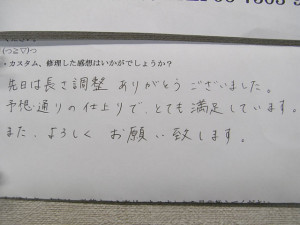 (つ≧▽)つ
カスタム、修理した感想はいかがでしょうか？
先日は長さ調整 ありがとう ございました。
予想通りの仕上りで、とても満足しています。
また、よろしく お願い致します。